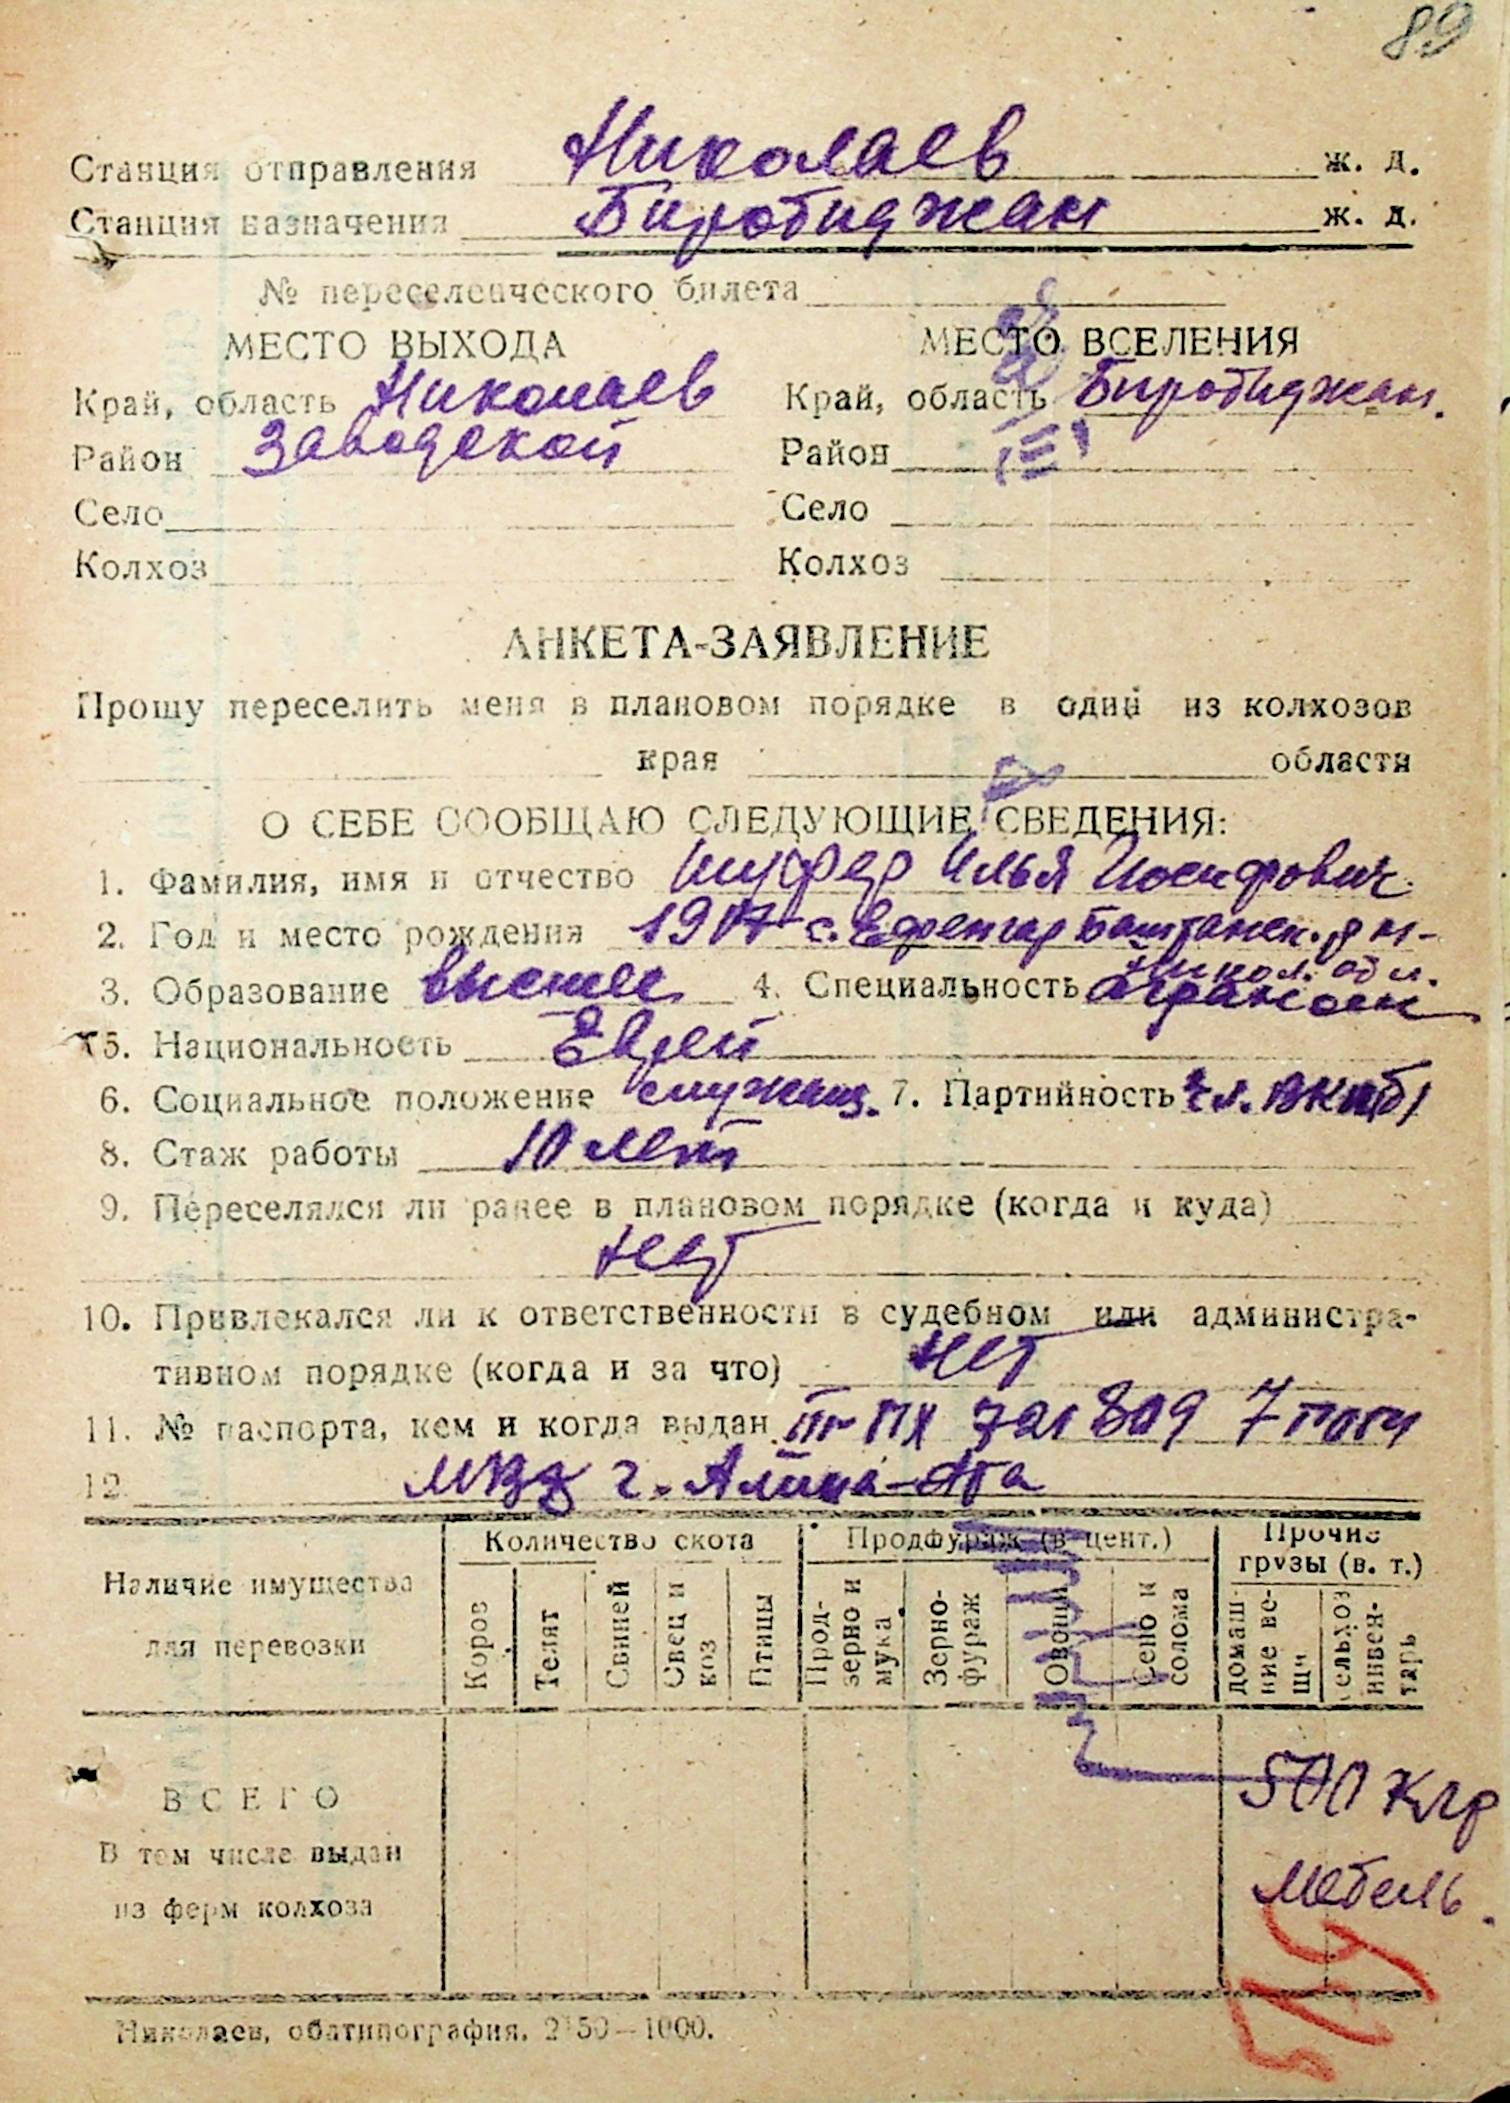 89
Станция отправления Николаев ж. д.
Станция назначения Биробиджан ж. д.
№ переселенческого билета
МЕСТО ВЫХОДА МЕСТО ВСЕЛЕНИЯ
Край, область Николаев Край, область Биробиджан.
Район Заводской Район
Село Село
Колхоз Колхоз
АНКЕТА-ЗАЯВЛЕНИЕ
Прошу переселить меня в плановом порядке в один из колхозов
края области
О СЕБЕ СООБЩАЮ СЛЕДУЮЩИЕ СВЕДЕНИЯ:
1. Фамилия, имя и отчество Шуфер Илья Иосифович
2. Год и место рождения с. Ефенгар Баштанск. р н-
Никол. обл.
3. Образование высшее 4. Специальность агроном
5. Национальность Еврей
6. Социальное положение служащ. 7. Партийность чл. ВКП(б)
8. Стаж работы 10 лет
9. Переселялся ли ранее в плановом порядке (когда и куда)
нет
10. Привлекался ли к ответственности в судебном или администра-
тивном порядке (когда и за что) нет
11. № паспорта, кем и когда выдан 721809 7
12. МВД г. Алма-Ата
Наличие имущества для перевозки
Количество скота
Продфураж (в цент.)
Прочие грузы (в. т.)
Коров
Телят
Свиней
Овец и коз
Птицы
Прод-зерно и мука
Зерно-фураж
Овощи
Сено и солома
домаш-ние ве-щи
сельхоз инвен-тарь
ВСЕГО 500 кгр
В том числе выдан мебель.
из ферм колхоза
Николаев, облтипография. 2150—1000.